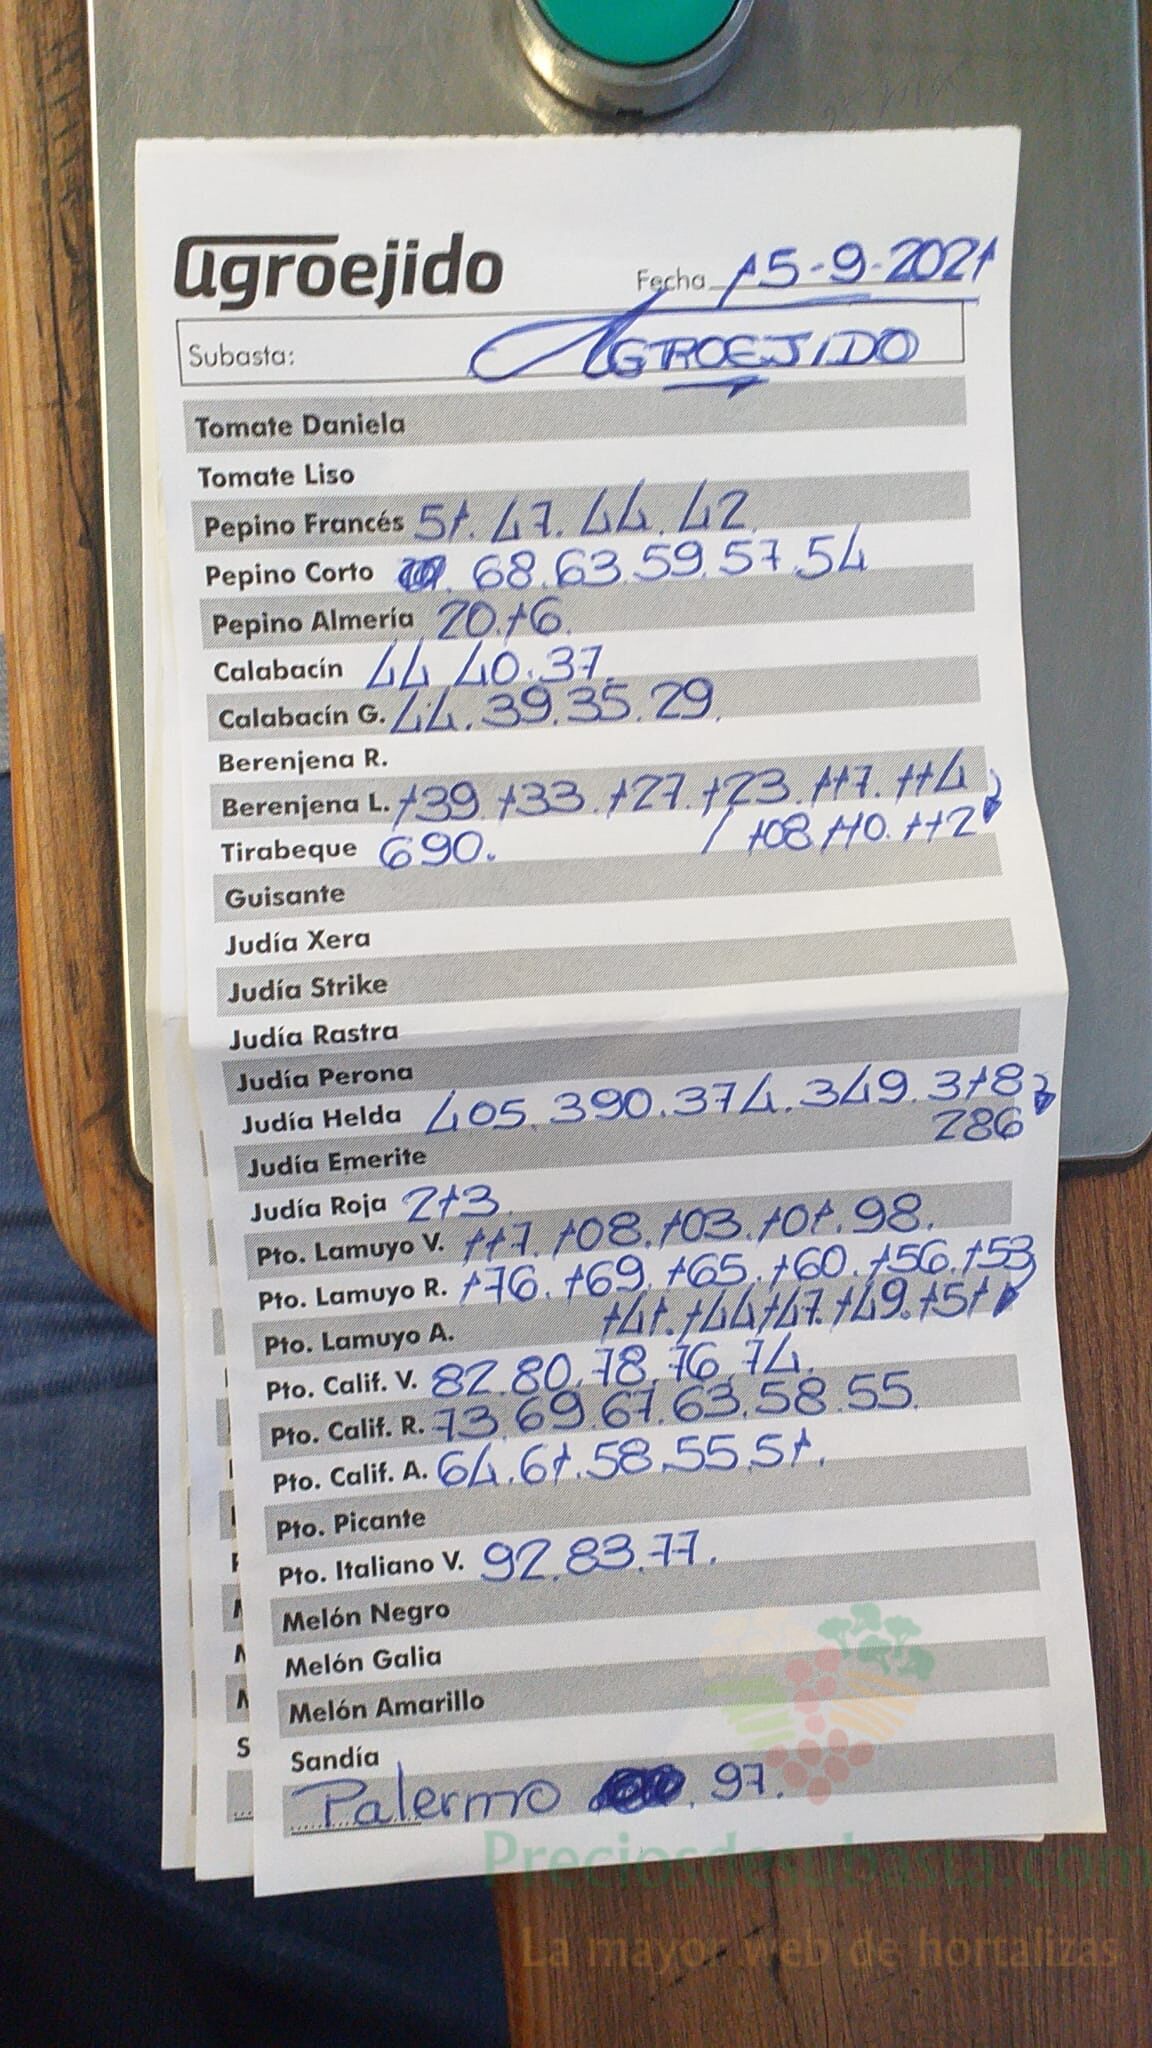 agroejido
Fecha 15-9-2021
Subasta: AGROEJIDO
Tomate Daniela
Tomate Liso
Pepino Francés 51. 47. 44. 42.
Pepino Corto 68. 63. 59. 57. 54
Pepino Almería 20. 16.
Calabacín 44 40. 37.
Calabacín G. 44. 39. 35. 29.
Berenjena R.
Berenjena L. 139 133. 127. 123. 117. 114
Tirabeque 690. / 108 110. 112
Guisante
Judía Xera
Judía Strike
Judía Rastra
Judía Perona
Judía Helda 405. 390. 374. 349. 318
286
Judía Emerite
Judía Roja 213.
Pto. Lamuyo V. 117. 108. 103. 101. 98.
Pto. Lamuyo R. 176. 169. 165. 160. 156. 153
Pto. Lamuyo A. 141. 144 147. 149. 151
Pto. Calif. V. 82. 80. 78. 76. 74.
Pto. Calif. R. 73. 69. 67. 63. 58. 55.
Pto. Calif. A. 64. 61. 58. 55. 51.
Pto. Picante
Pto. Italiano V. 92. 83. 77.
Melón Negro
Melón Galia
Melón Amarillo
Sandía
Palermo . 97.
Preciosdesubasta.com
La mayor web de hortalizas